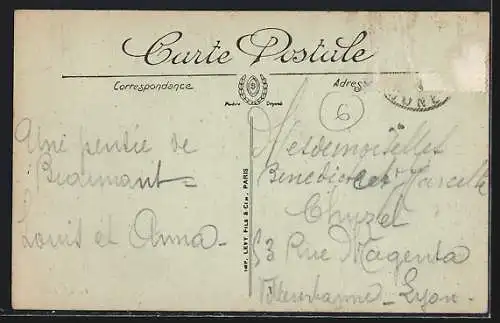 Carte Postale
Correspondance
Adres
Marque Déposée
6
IMP. LEVY FILS & Cie, PARIS
Une pensée de
Louis et Anna
Mesdemoiselles
et Marcelle
Chuzel
53 Rue Magenta
Villeurbanne - Lyon